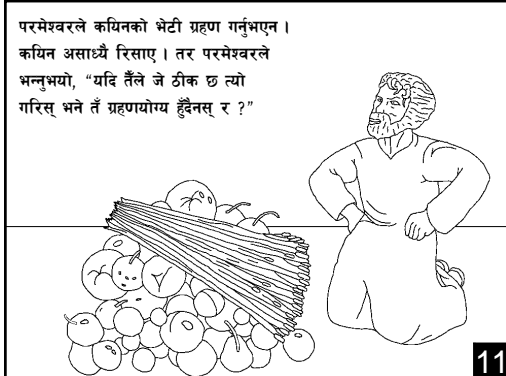 परमेश्वरले कयिनको भेटी ग्रहण गर्नुभएन ।
कयिन असाध्यै रिसाए । तर परमेश्वरले
भन्नुभयो, “यदि तैंले जे ठीक छ त्यो
गरिस् भने तँ ग्रहणयोग्य हुँदैनस् र ?”
11